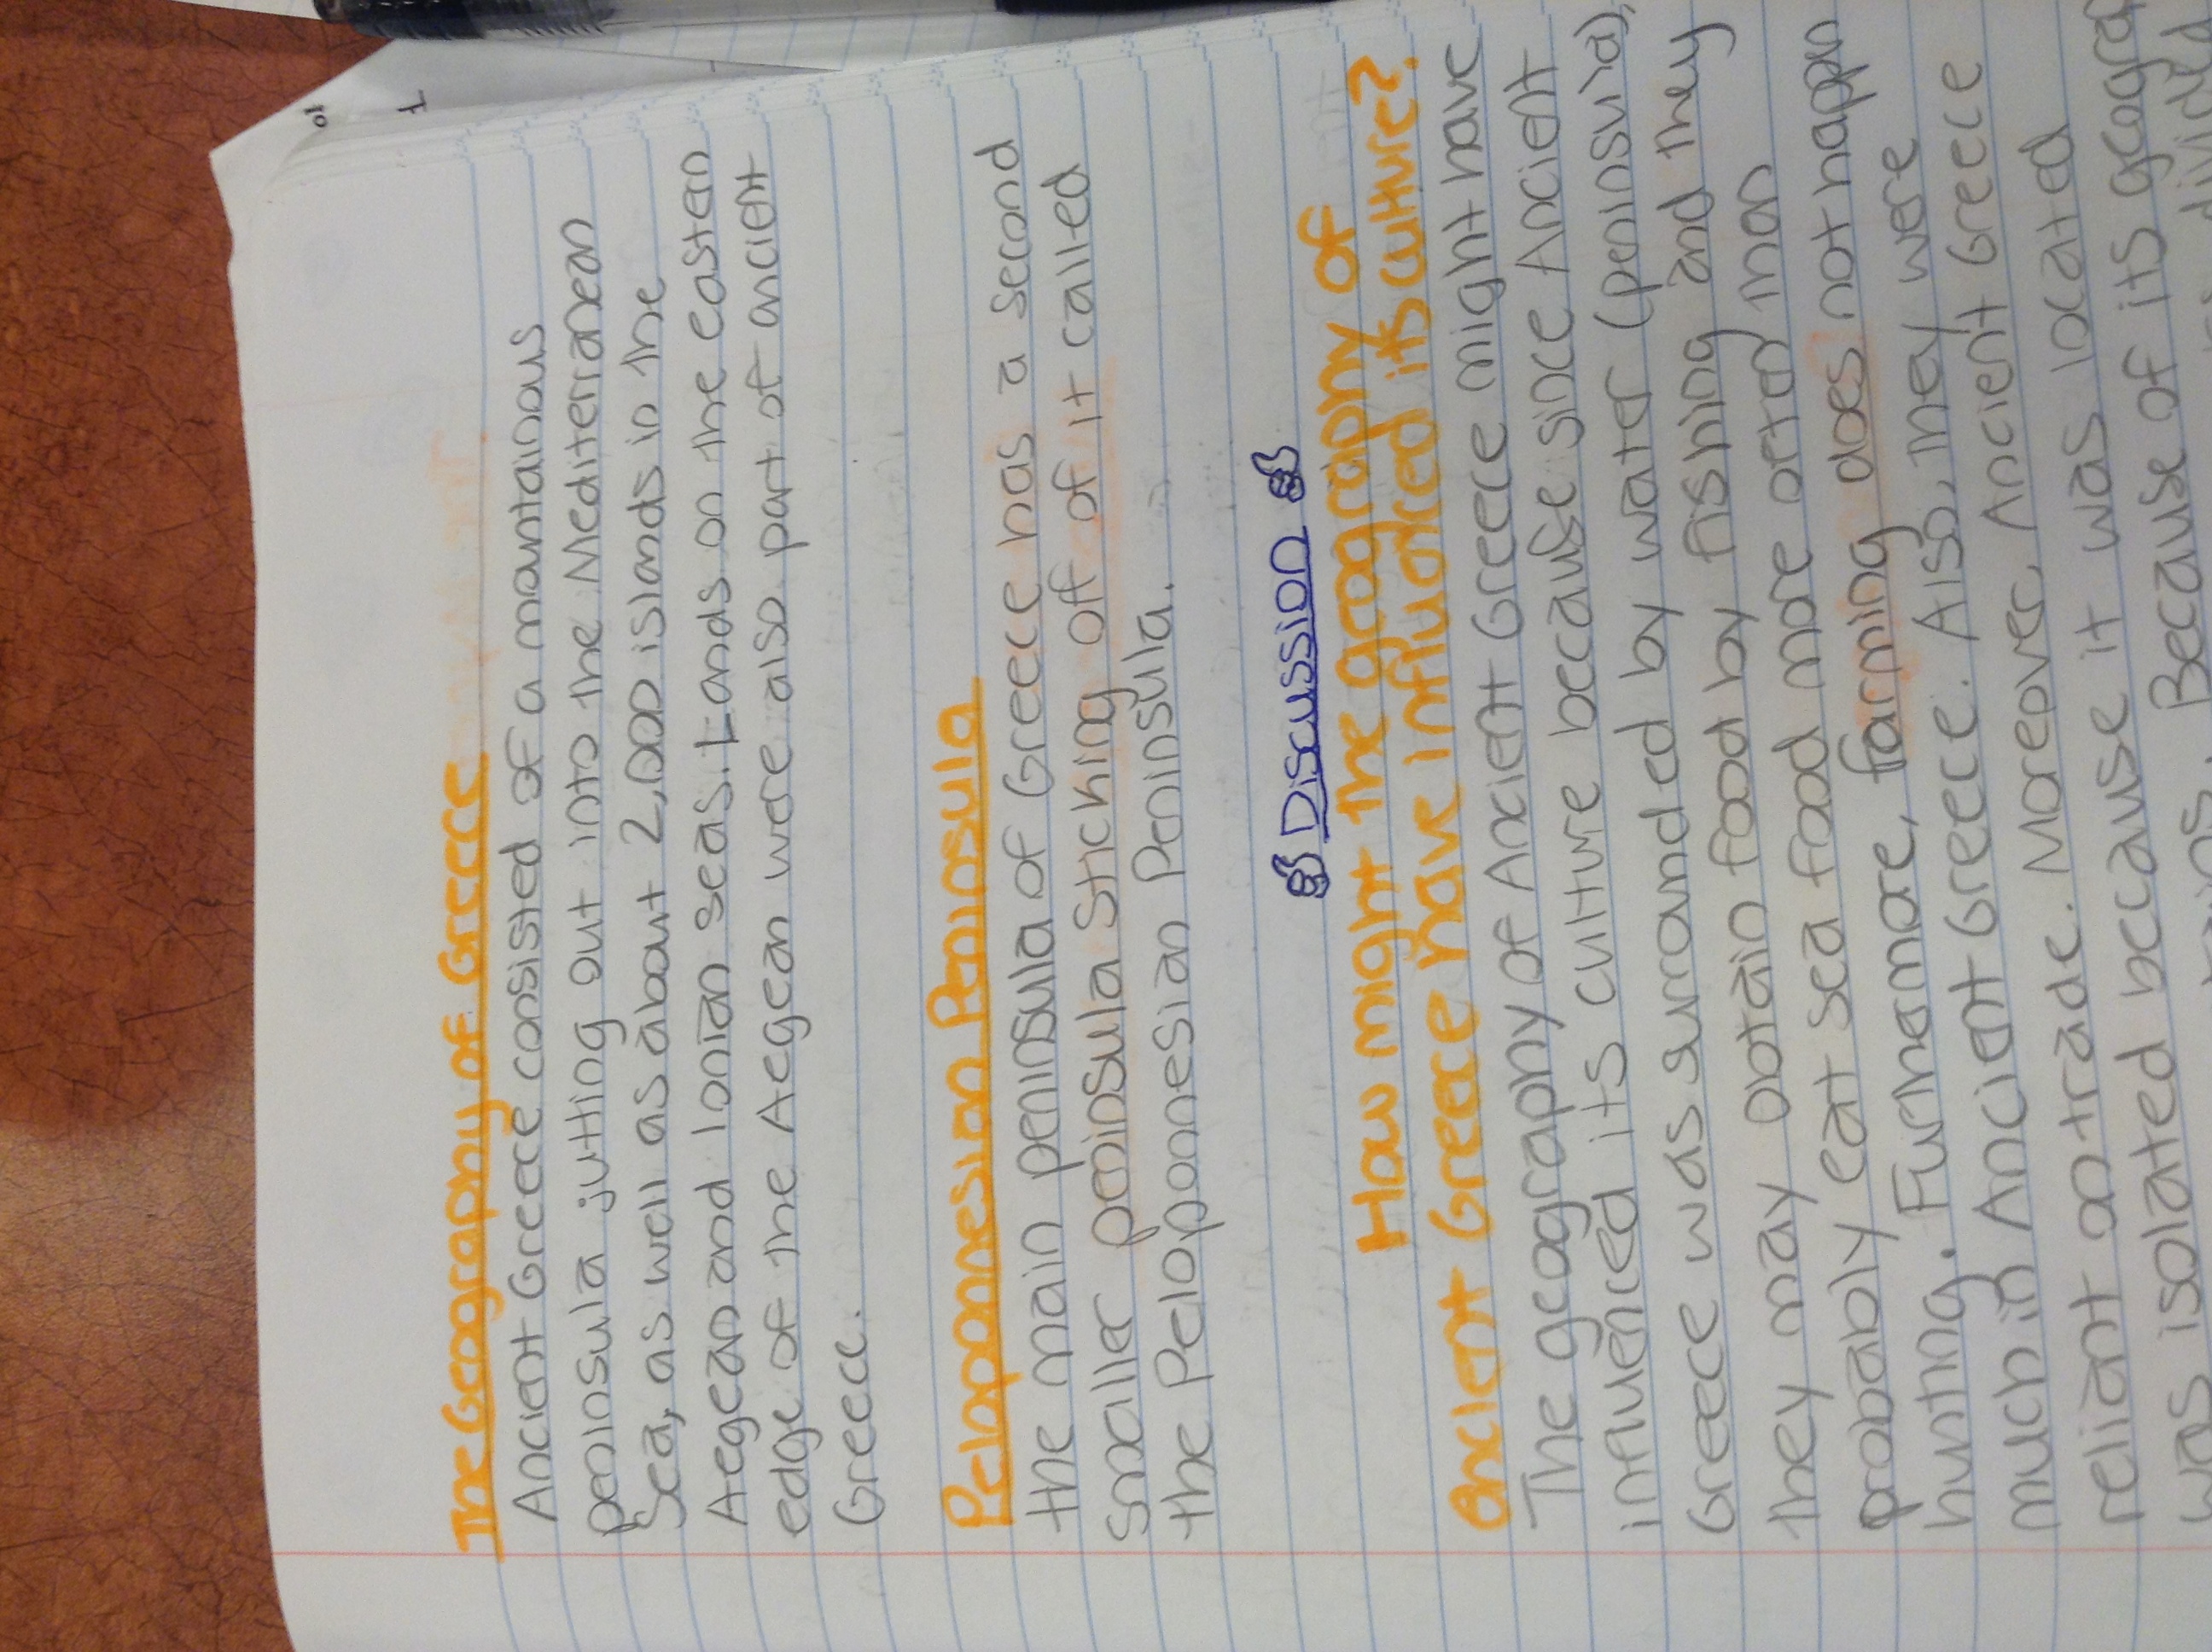 The Geography of Greece
Ancient Greece consisted of a mountainous
peninsula jutting out into the Mediterranean
Sea, as well as about 2,000 islands in the
Aegean and Ionian seas. Lands on the eastern
edge of the Aegean were also part of ancient
Greece.
Peloponnesian Peninsula
the main peninsula of Greece has a second
smaller peninsula sticking off of it called
the Peloponnesian Peninsula.
Discussion
How might the geography of
ancient Greece have influenced its culture?
The geography of Ancient Greece might have
influenced its culture because since Ancient
Greece was surrounded by water (peninsula),
they may obtain food by fishing and they
probably eat sea food more often than
hunting. Furthermore, farming does not happen
much in Ancient Greece. Also, they were
reliant on trade. Moreover, Ancient Greece
was isolated because it was located
Because of its
divided
ol
1